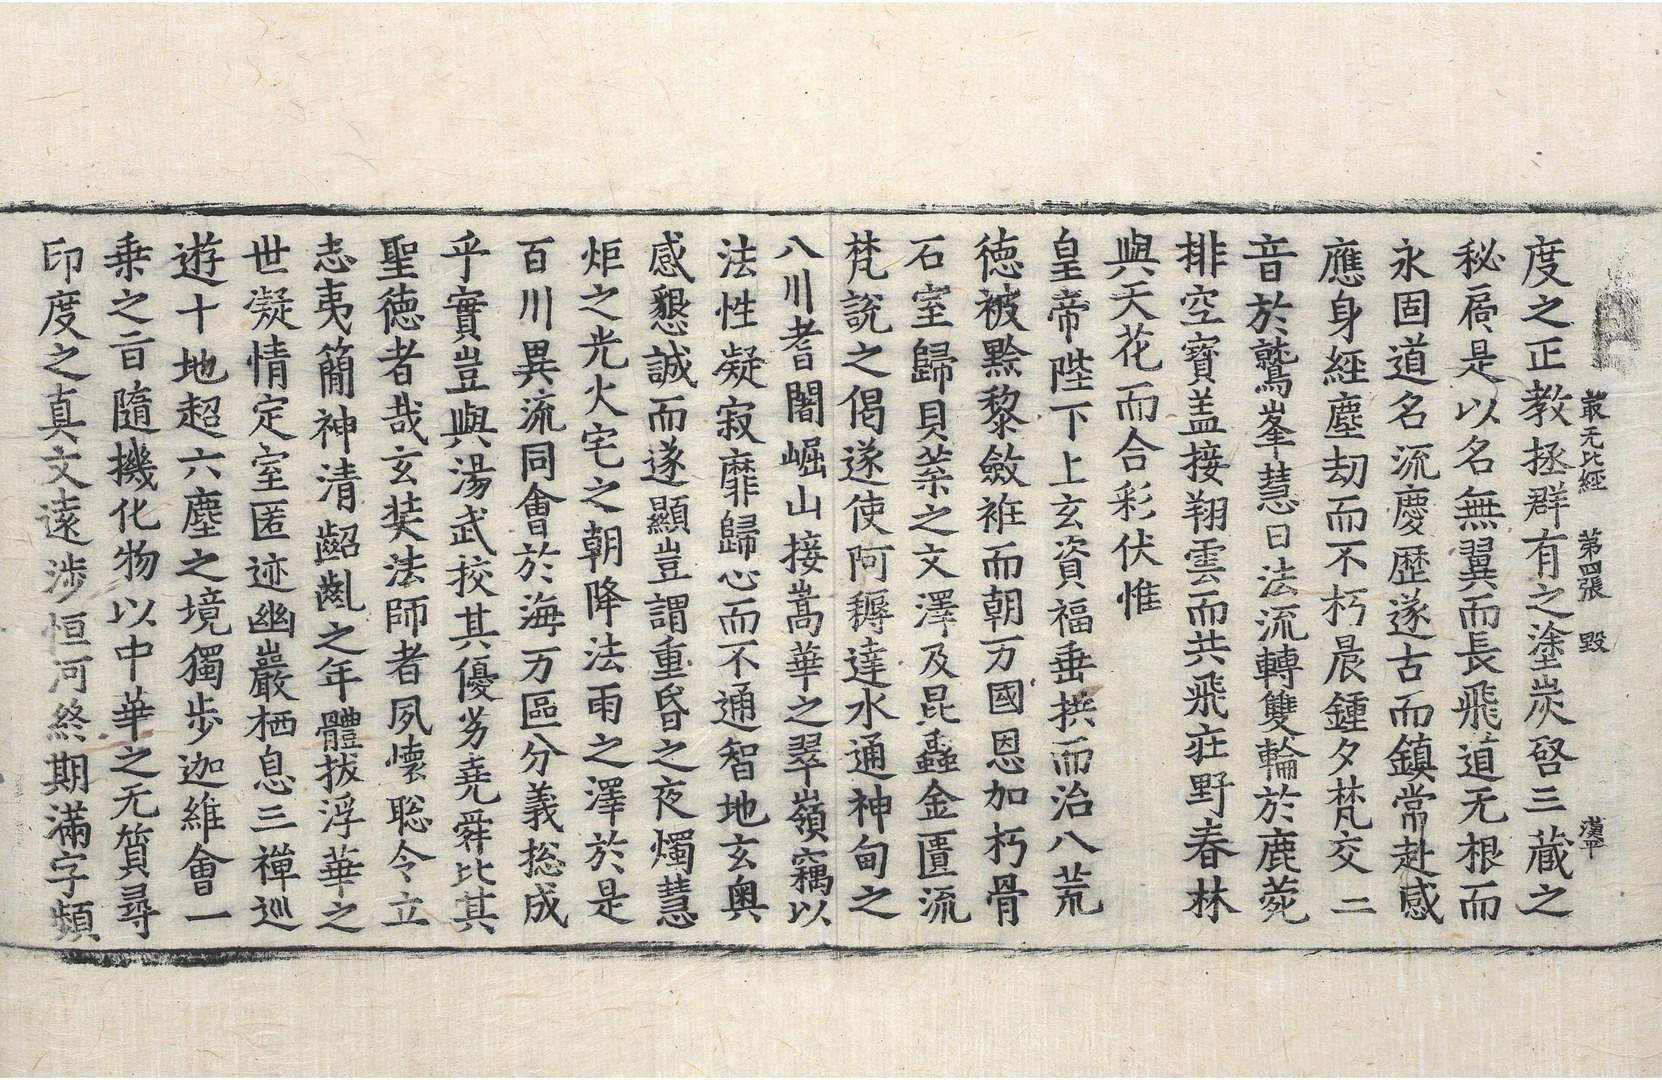 最无比經 第四張 毀 漢甲
度之正教拯群有之塗炭啓三藏之
秘扄是以名無翼而長飛道无根而
永固道名流慶歷遂古而鎮常赴感
應身經塵劫而不朽晨鍾夕梵交二
音於鷲峯慧日法流轉雙輪於鹿菀
排空寶盖接翔雲而共飛庄野春林
與天花而合彩伏惟
皇帝陛下上玄資福垂拱而治八荒
徳被黔黎斂袵而朝万國恩加朽骨
石室歸貝葉之文澤及昆蟲金匱流
梵說之偈遂使阿耨達水通神甸之
八川耆闍崛山接嵩華之翠嶺竊以
法性凝寂靡歸心而不通智地玄奥
感懇誠而遂顯豈謂重昏之夜燭慧
炬之光火宅之朝降法雨之澤於是
百川異流同會於海万區分義捴成
乎實豈與湯武挍其優劣堯舜比其
聖德者哉玄奘法師者夙懷聡令立
志夷簡神清齠齓之年體拔浮華之
世凝情定室匿迹幽巖栖息三禪巡
遊十地超六塵之境獨步迦維會一
乗之旨隨機化物以中華之无質尋
印度之真文遠涉恒河終期滿字頻